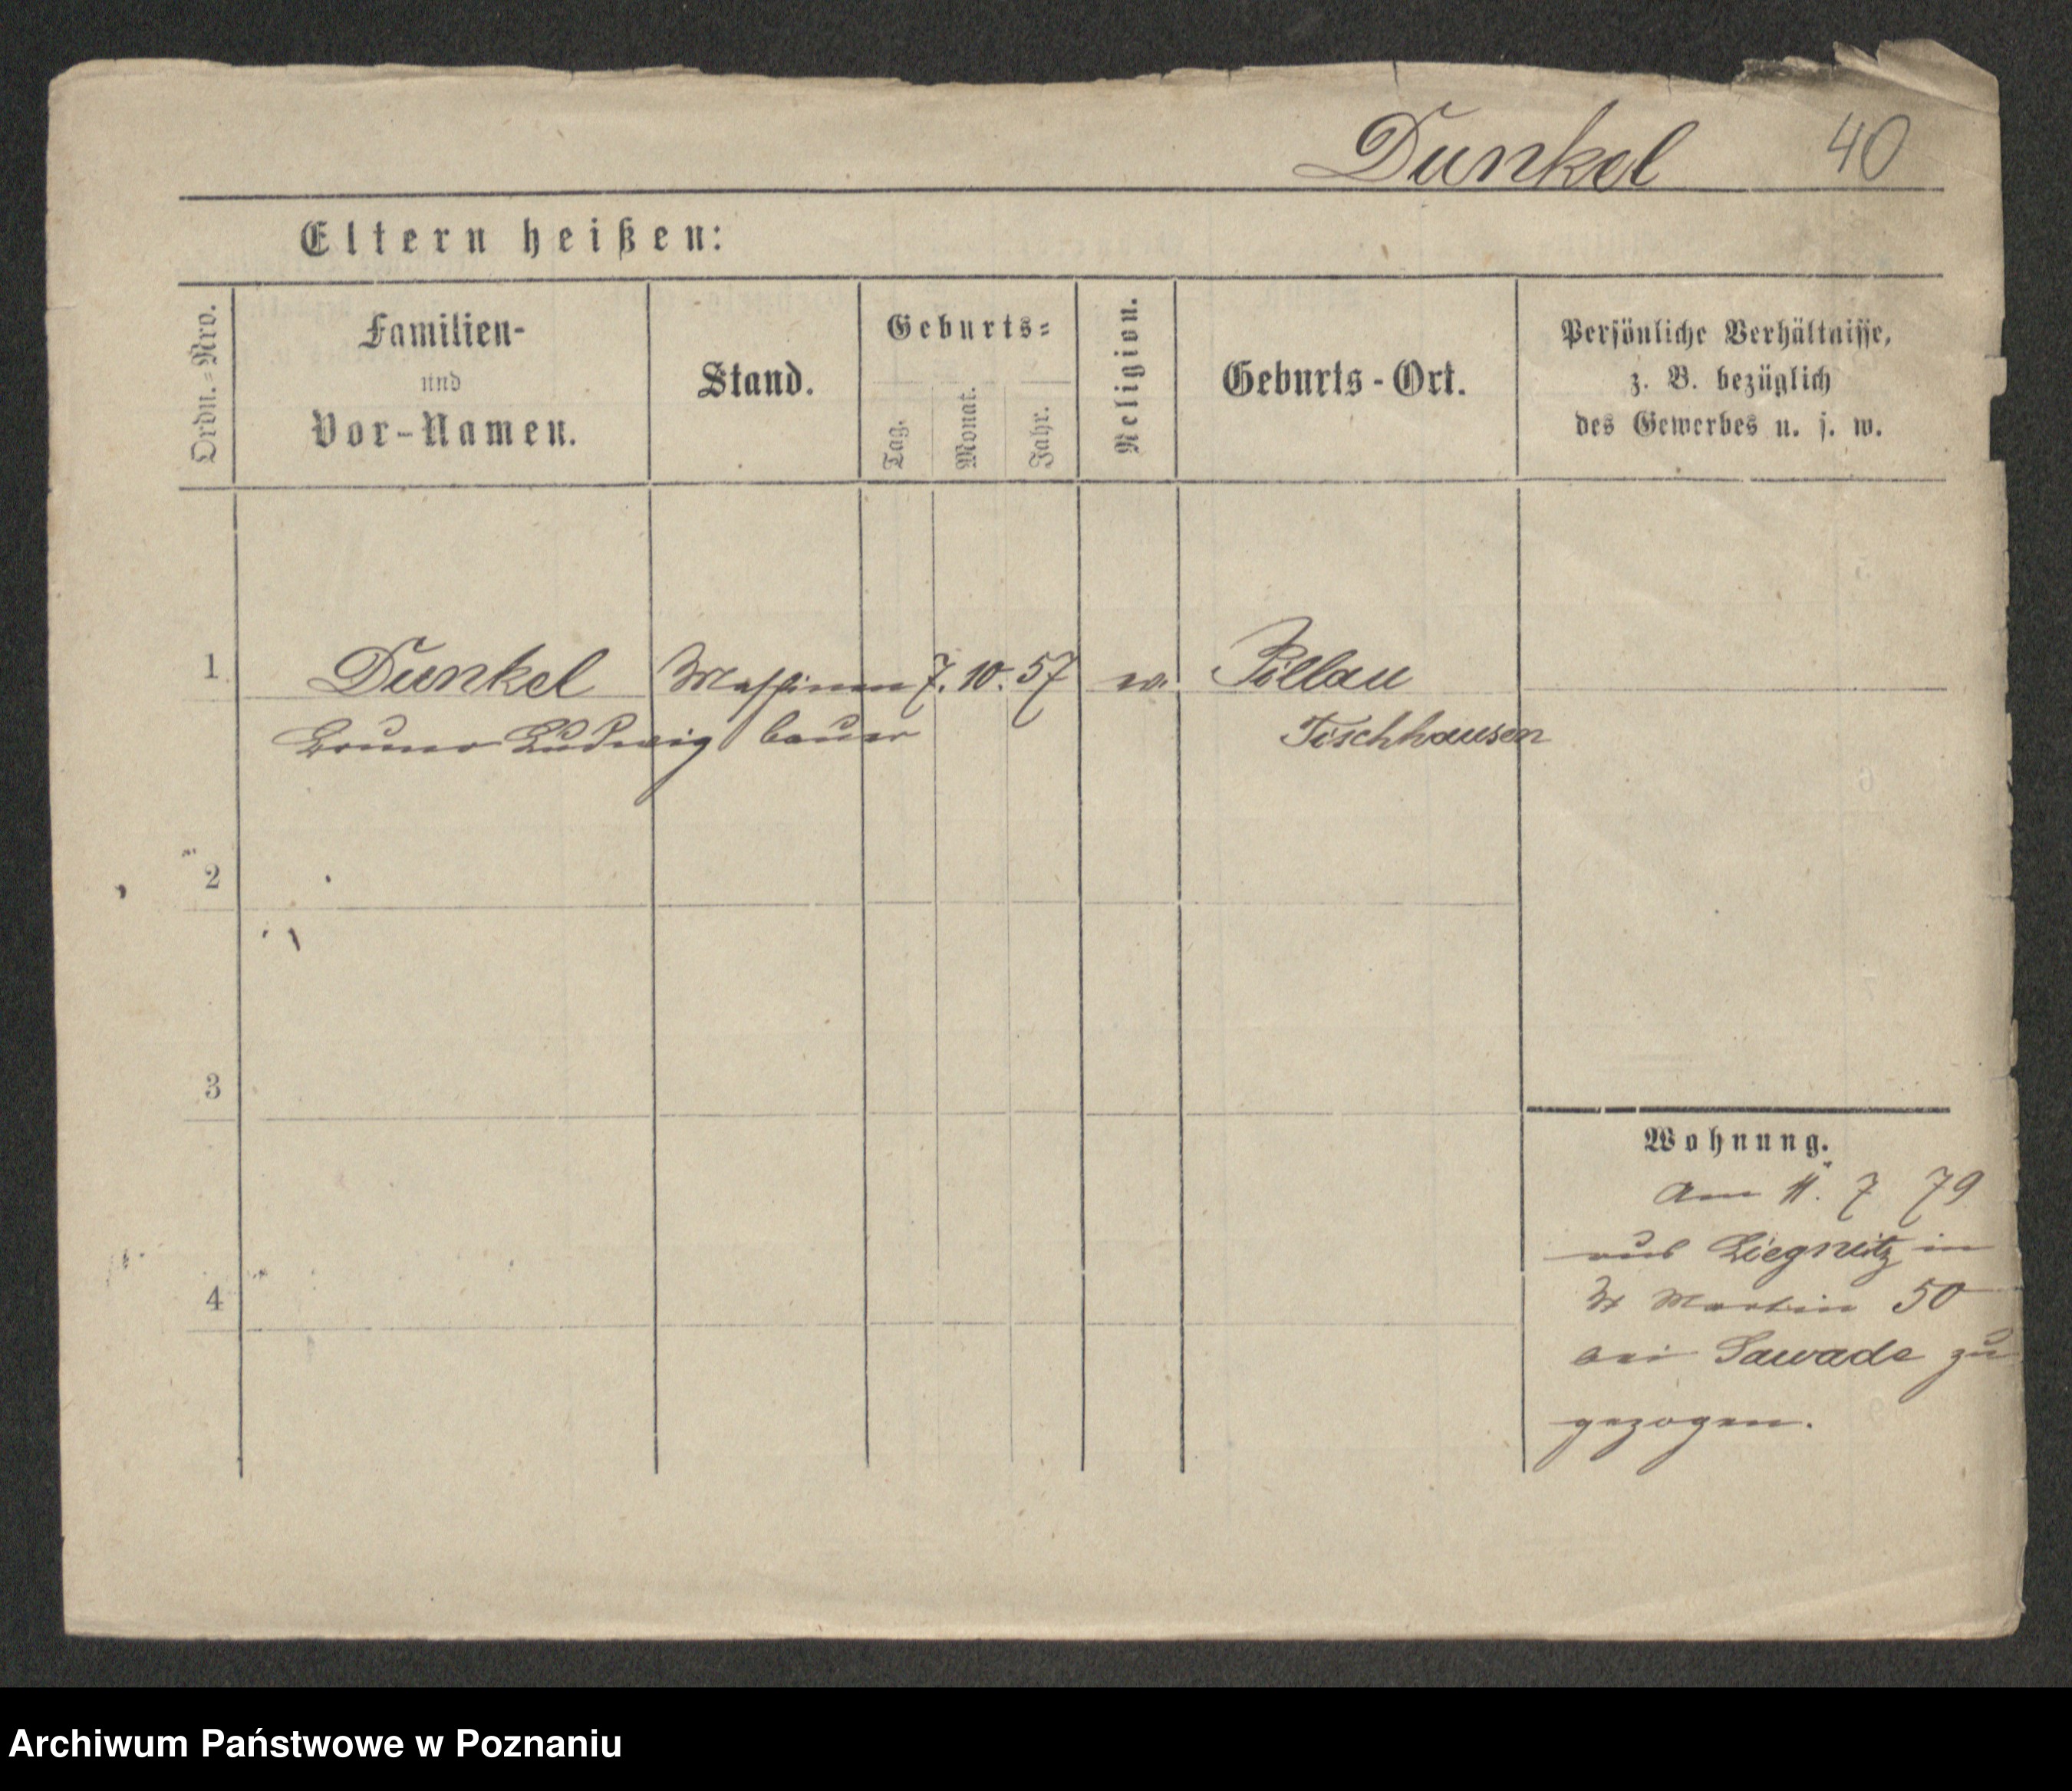 Dunkel 40
Eltern heißen:
Ordn.=Nro.
Familien-
und
Vor-Namen.
Stand.
Geburts=
Tag.
Monat.
Jahr.
Religion.
Geburts-Ort.
Persönliche Verhältnisse,
z. B. bezüglich
des Gewerbes u. s. w.
1 Dunkel Maschinen 7. 10. 57 ev. Pillau
Bruno Ludwig bauer Fischhausen
2
3
4
Wohnung.
Am 11. 7 79
aus Liegnitz in
St Martin 50
bei Sawade zu
gezogen.
Archiwum Państwowe w Poznaniu